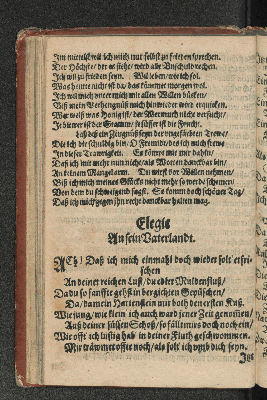 Im mittelst wil ich mich mit selbst zu frieden sprechen.
Der Höchste/ der es siehet/ wird die Unschuld rechen.
Ich wil zu frieden seyn. Wil leben/ wie ich sol.
Was heute nicht ist da/ das kömmet morgen wol.
Ich wil mich unter mich mit allen Willen bücken/
Biß mein Verhengnüß mich hinwieder wird erquicken.
Wer weiß was Honig ist/ der Wermuth nicht versucht;
Je bitter ist der Stamm/ je süsser ist die Frucht.
Laß diß ein Zeugnüß seyn der ungefärbten Trewe/
Die ich dir schuldig bin/ O Freund/ des ich mich frewe
In dieser Trawrigkeit. Es kömt mir nur dahin/
Daß ich mit mehr nicht/ als Worten danckbar bin/
An keinem Mangel arm. Du wirst vor Willen nehmen/
Biß ich mich meines Glücks nicht mehr so werde schemen/
Von dem du schweigend sagst. Es komm doch schöner Tag/
Daß ich mich gegen ihn recht danckbar halten mag.
Elegie
An sein Vaterland.
ACh! Daß ich mich einmahl doch wieder solt erfri-
schen
An deiner reichen Lust/ du edler Muldenfluß/
Da du so sanffte gehst in bergichten Gepüschen/
Da/ da mein Hartenstein mir both den ersten Kuß.
Wie jung/ wie klein ich auch ward jener Zeit genommen/
Auß deiner süssen Schoß/ so fällt mirs doch noch ein/
Wie offt ich lustig hab in deiner Fluth geschwommen.
Mir träwmet offte noch/ als solt ich umb dich seyn.